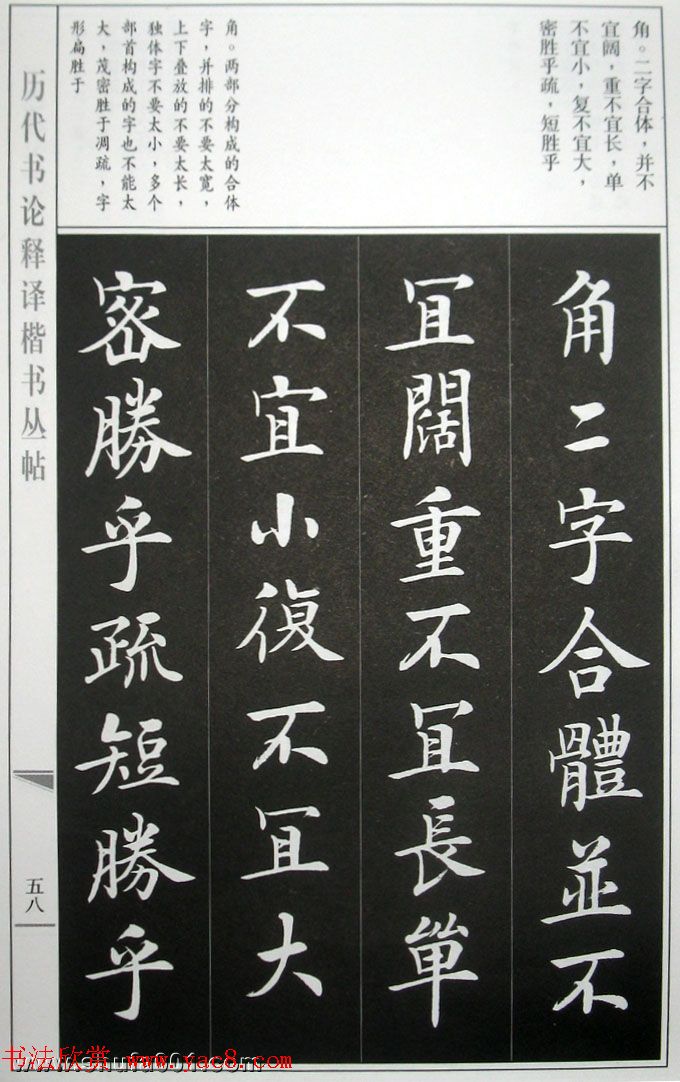 角。二字合体，并不
宜阔，重不宜长，单
不宜小，复不宜大，
密胜乎疏，短胜乎
角。两部分构成的合体
字，并排的不要太宽，
上下叠放的不要太长，
独体字不要太小，多个
部首构成的字也不能太
大，茂密胜于凋疏，字
形扁胜于
角二字合體並不
冝闊重不冝長單
不宜小復不冝大
密勝乎疏短勝乎
历代书论释译楷书丛帖
五八
书法欣赏 www.yac8.com